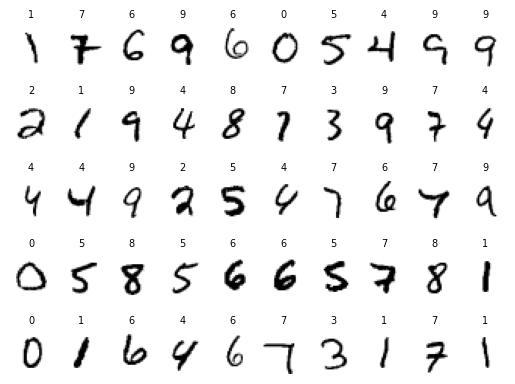 1 7 6 9 6 0 5 4 9 9
1 7 6 9 6 0 5 4 9 9
2 1 9 4 8 7 3 9 7 4
2 1 9 4 8 7 3 9 7 4
4 4 9 2 5 4 7 6 7 9
4 4 9 2 5 4 7 6 7 9
0 5 8 5 6 6 5 7 8 1
0 5 8 5 6 6 5 7 8 1
0 1 6 4 6 7 3 1 7 1
0 1 6 4 6 7 3 1 7 1